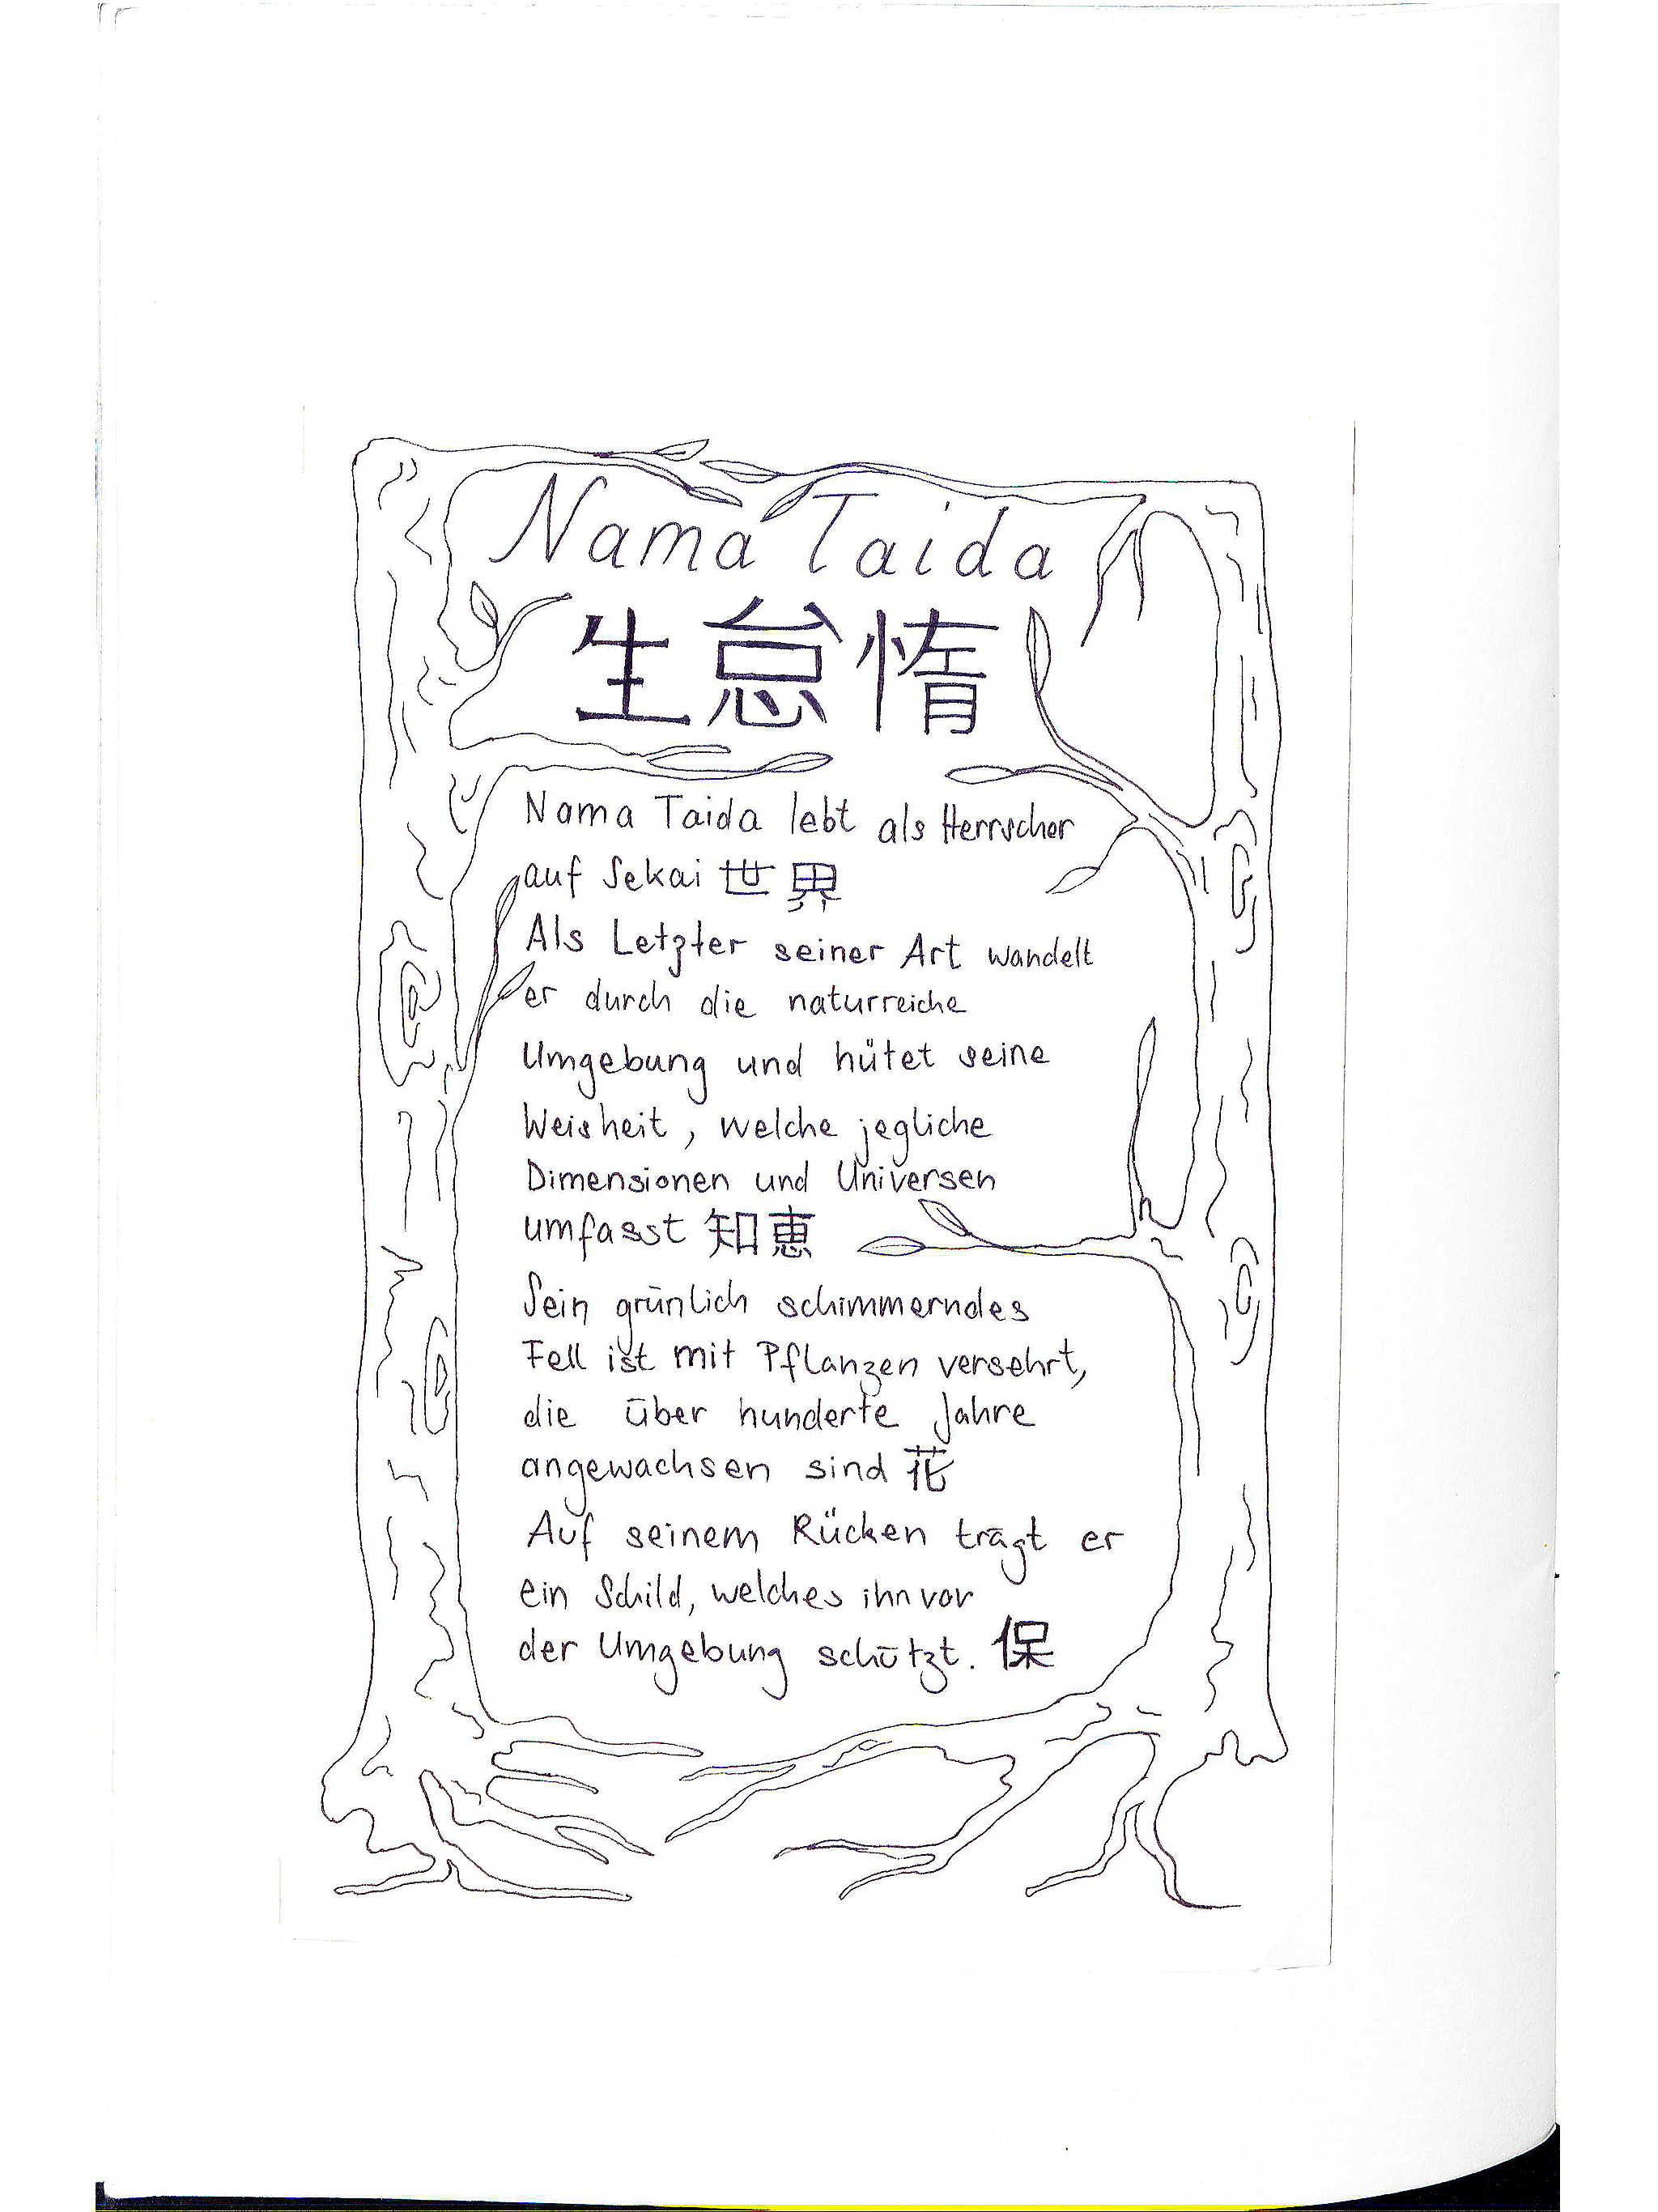 Nama Taida
生怠惰
Nama Taida lebt als Herrscher
auf Sekai 世界
Als Letzter seiner Art wandelt
er durch die naturreiche
Umgebung und hütet seine
Weisheit, welche jegliche
Dimensionen und Universen
umfasst 知恵
Sein grünlich schimmerndes
Fell ist mit Pflanzen versehrt,
die über hunderte Jahre
angewachsen sind 花
Auf seinem Rücken trägt er
ein Schild, welches ihn vor
der Umgebung schützt. 保